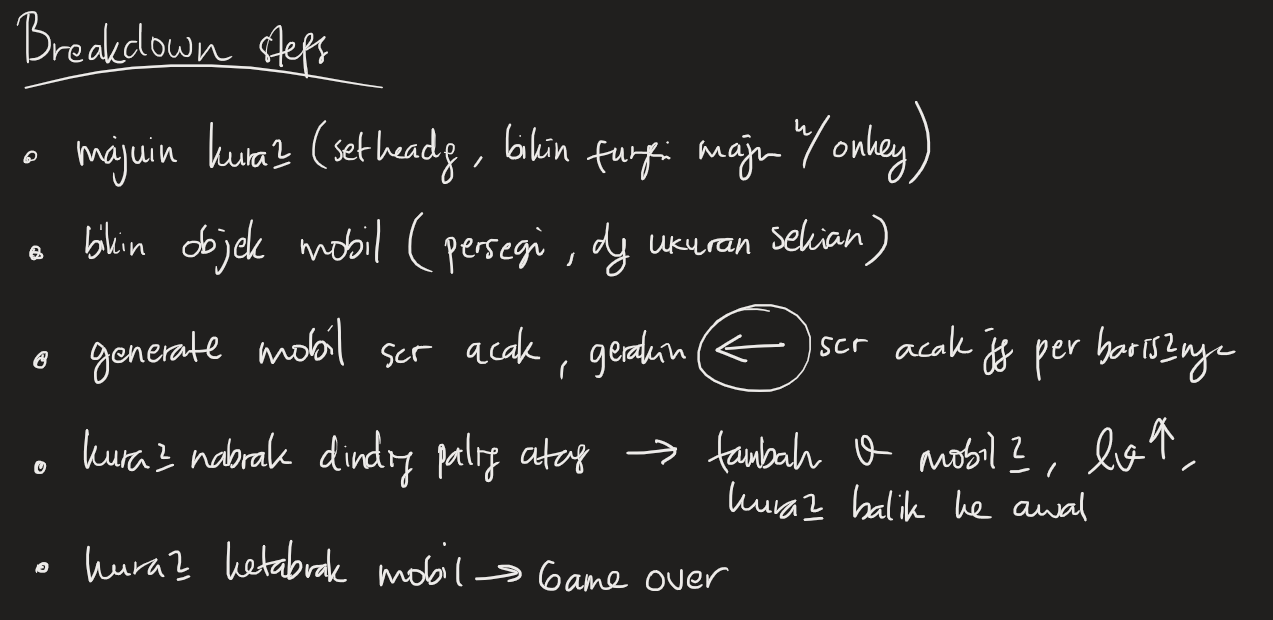 Breakdown steps
• majuin kura2 (setheadg, bikin fungsi maju u/ onkey)
• bikin objek mobil (persegi, dg ukuran sekian)
• generate mobil scr acak, gerakin ← scr acak jg per baris2nya
• kura2 nabrak dinding palig atas → tambah v mobil2, lvl ↑,
kura2 balik ke awal
• kura2 ketabrak mobil → Game over